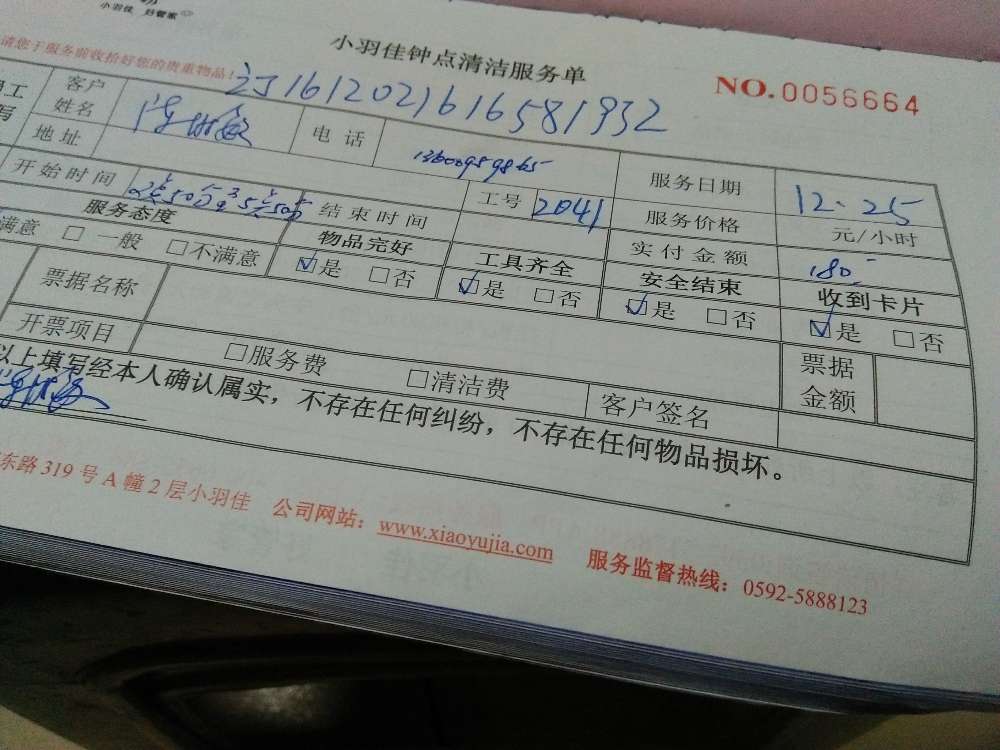 小羽佳 好管家
小羽佳钟点清洁服务单
NO.0056664
请您于服务前收拾好您的贵重物品!
1612021616581932
工
写
客户
姓名
电话
服务日期
12.25
地址
工号
2041
服务价格
元/小时
开始时间
2点50分至5点50分
结束时间
实付金额
180
服务态度
物品完好
工具齐全
安全结束
收到卡片
满意 □一般 □不满意
☑是 □否
☑是 □否
☑是 □否
☑是 □否
票据名称
票据
金额
开票项目
□服务费
□清洁费
客户签名
以上填写经本人确认属实,不存在任何纠纷,不存在任何物品损坏。
东路319号A幢2层小羽佳 公司网站:www.xiaoyujia.com 服务监督热线:0592-5888123